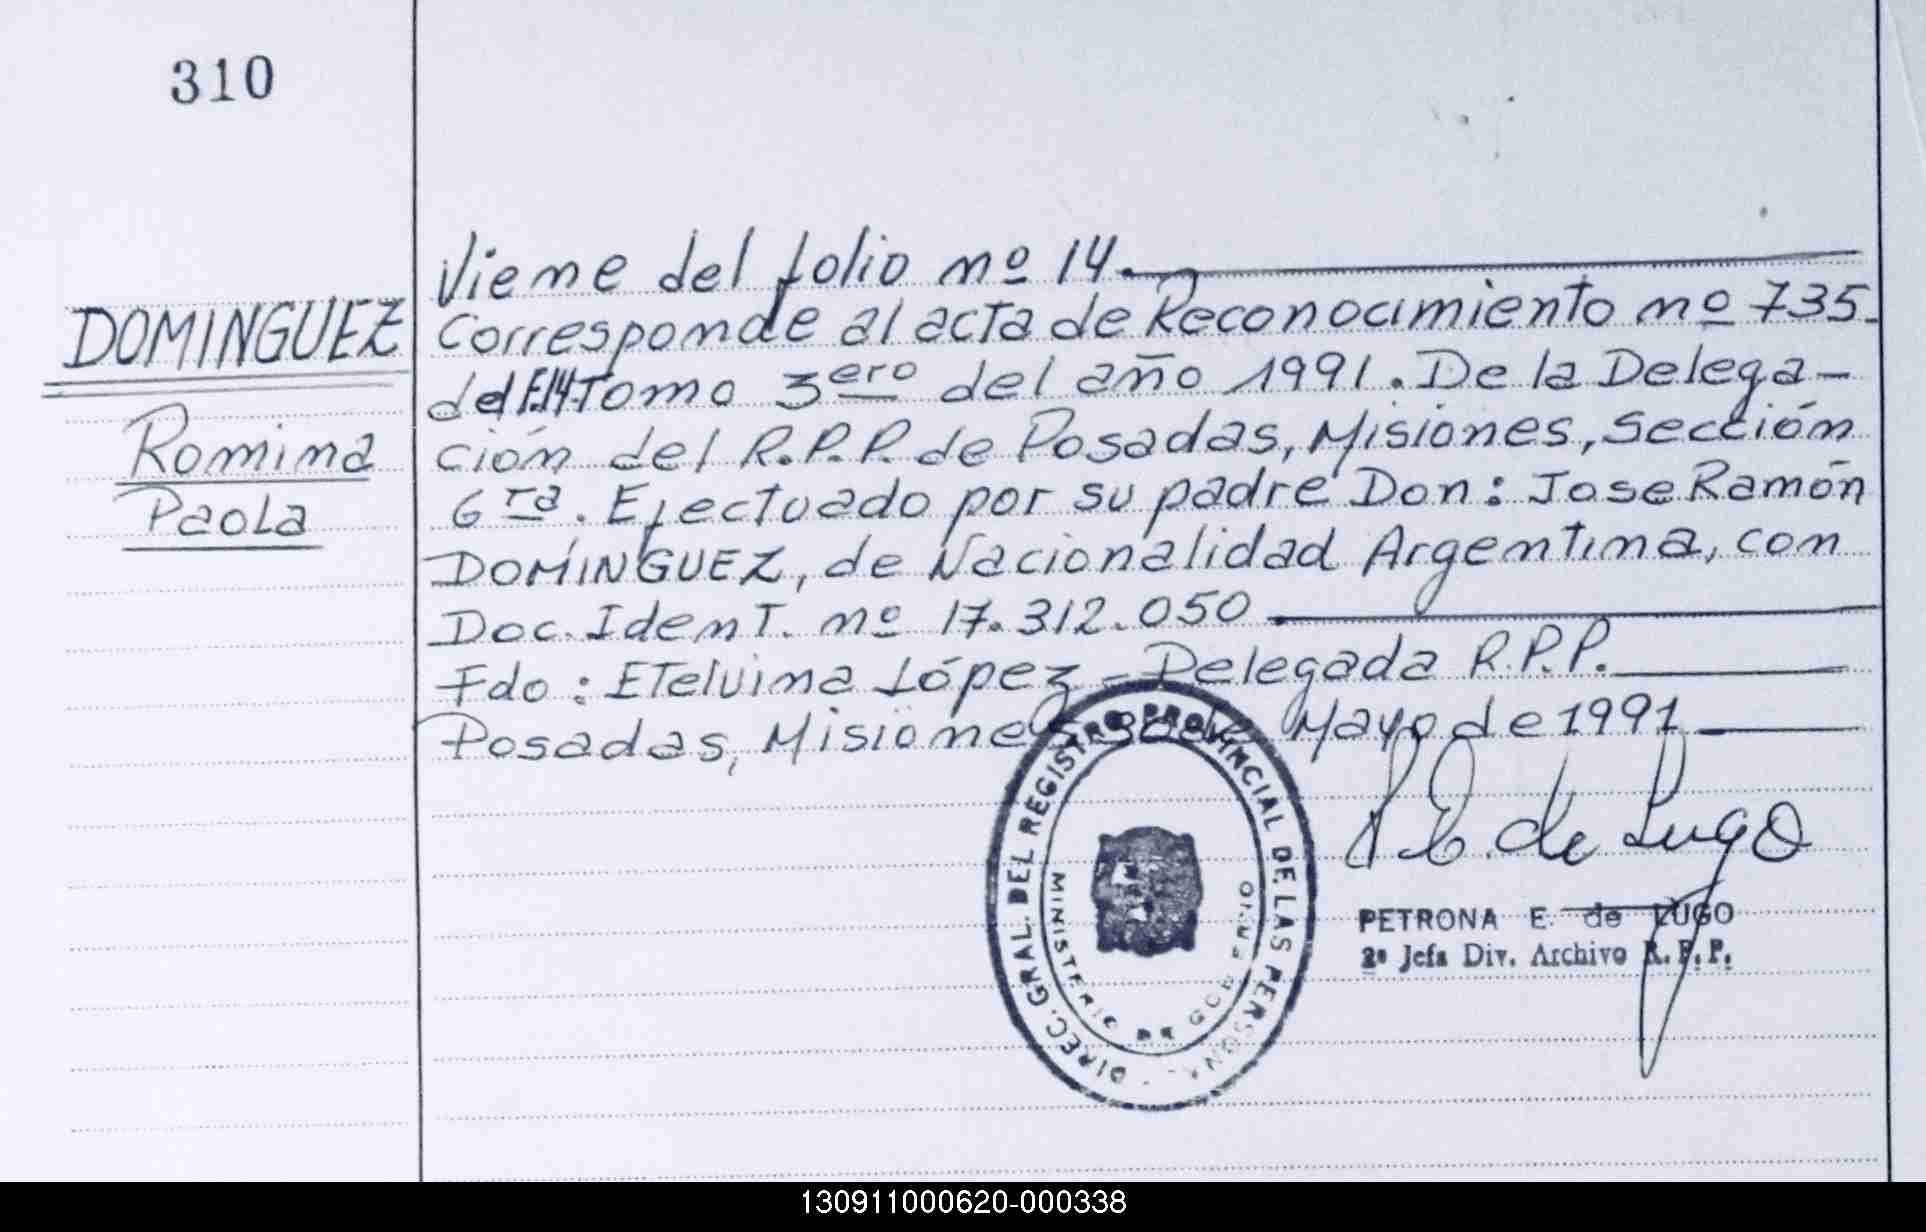 310
DOMINGUEZ
Romina
Paola
Viene del folio nº 14.
Corresponde al acta de Reconocimiento nº 735.
del F.14 Tomo 3ero del año 1991. De la Delega-
ción del R.P.P. de Posadas, Misiones, Sección
6ta. Efectuado por su padre Don: Jose Ramón
DOMINGUEZ, de Nacionalidad Argentina, con
Doc. Ident. nº 17.312.050
Fdo: Etelvina López - Delegada R.P.P.
Posadas, Misiones 30 de Mayo de 1991
P.E. de Lugo
PETRONA E. de LUGO
2º Jefa Div. Archivo R.P.P.
DIREC. GRAL. DEL REGISTRO PROVINCIAL DE LAS PERSONAS
MINISTERIO DE GOBIERNO
130911000620-000338